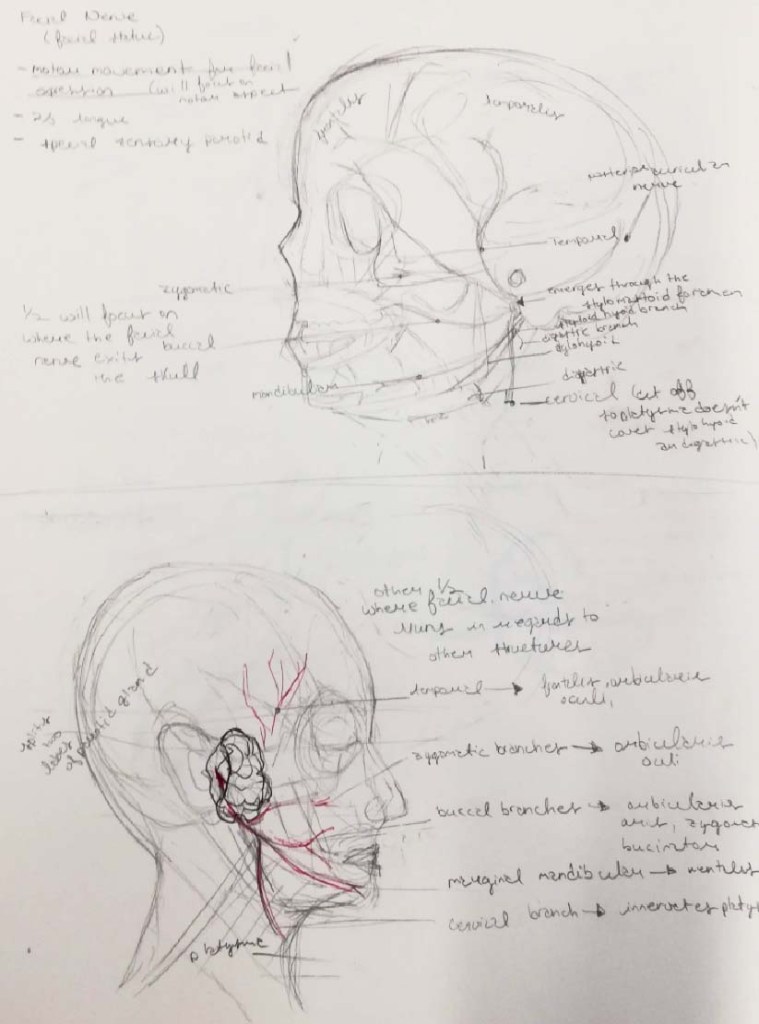 Facial Nerve
(facial statue)
- motor movements for facial
expression (will focus on
motor aspect
- 2/3 tongue
- special sensory parotid
frontalis
temporalis
posterior auricular
nerve
temporal
zygomatic
emerges through the
stylomastoid foramen
stylohyoid branch
digastric branch
stylohyoid
1/2 will focus on
where the facial
nerve exits
the skull
buccal
mandibular
digastric
cervical (cut off
so platysma doesn't
cover stylohyoid
and digastric)
other 1/2
where facial nerve
runs in regards to
other structures
splits
two
lobes
of parotid gland
temporal → frontalis, orbicularis
oculi,
zygomatic branches → orbicularis
oculi
buccal branches → orbicularis
oris, zygomat
buccinator
marginal mandibular → mentalis
cervical branch → innervates platy
platysma